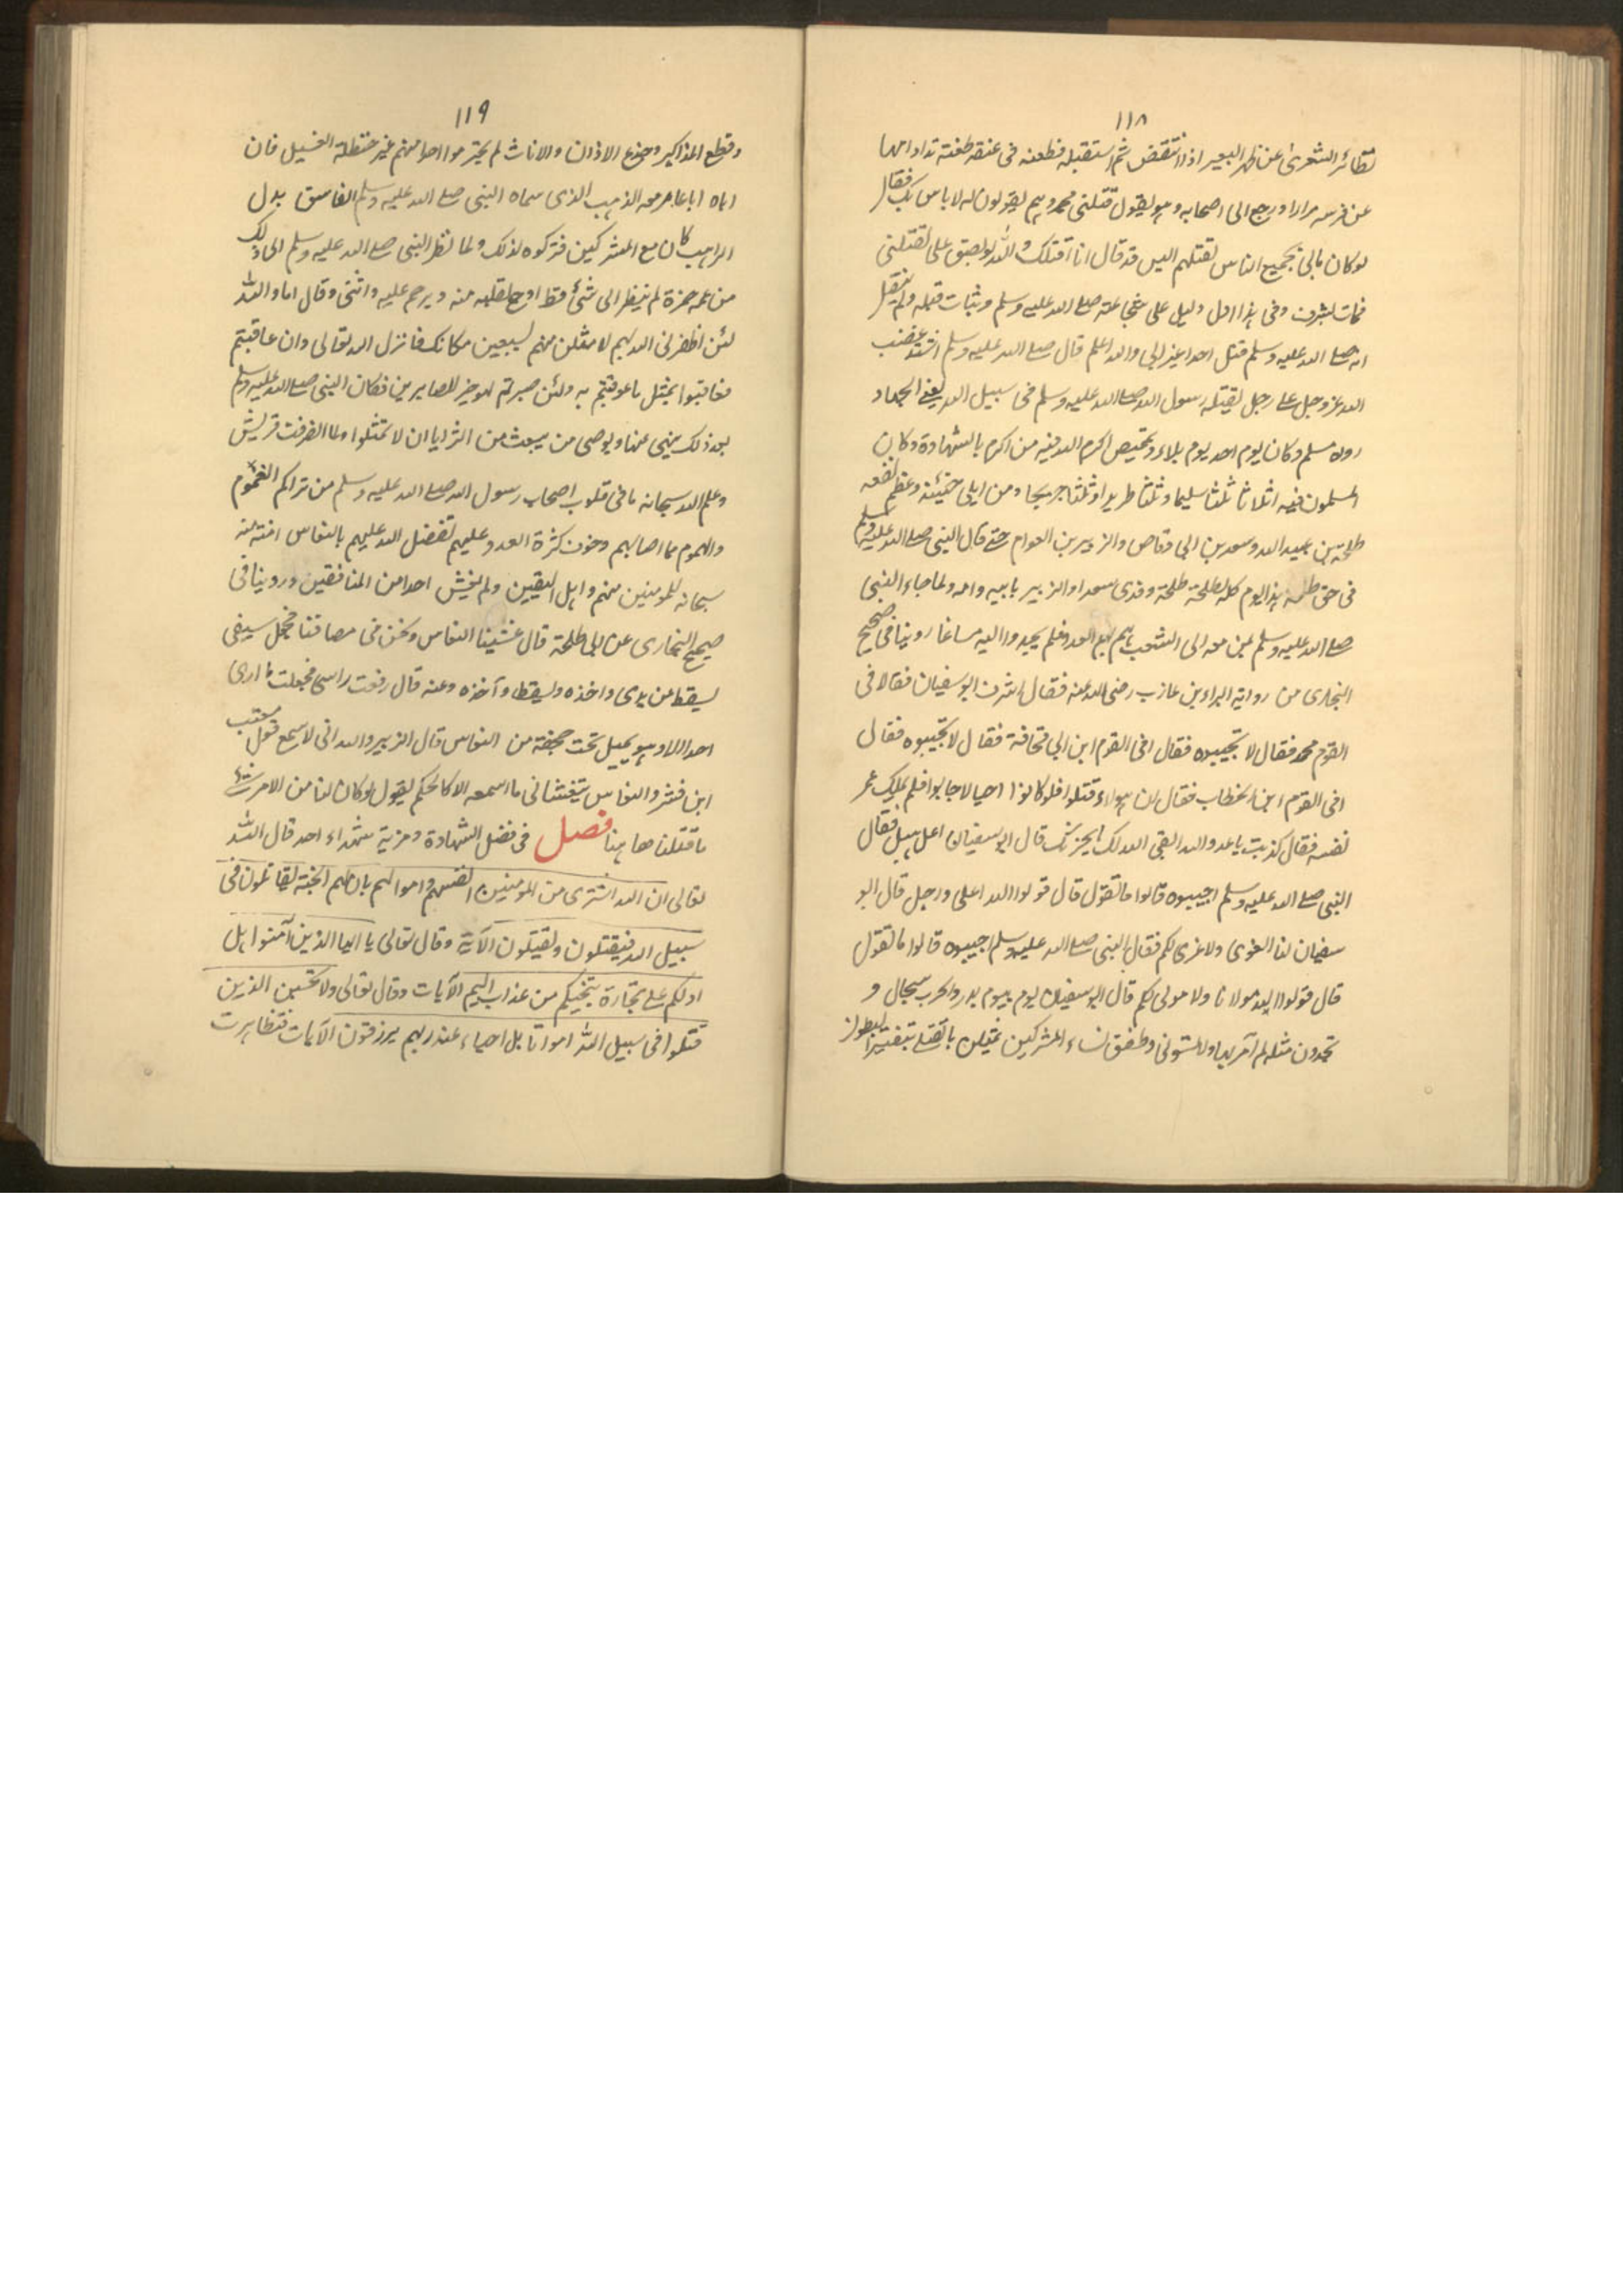 ١١٨
تطائر الشعرى عن ظهر البعير اذا انتقض ثم استقبله فطعنه فى عنقه طعنة تدادا منها
عن فرسه مرارا ورجع الى اصحابه وهو يقول قتلنى محمد وهم يقولون له لا باس بك فقال
لو كان ما بى بجميع الناس لقتلهم اليس قد قال انا اقتلك والله لو بصق على لقتلنى
فمات بشرف وفى هذا ادل دليل على شجاعته صلى الله عليه وسلم وثبات قلبه ولم ينقل
انه صلى الله عليه وسلم قتل احدا غير ابى والله اعلم قال صلى الله عليه وسلم اشتد غضب
الله عز وجل على رجل يقتله رسول الله صلى الله عليه وسلم فى سبيل الله يعنى الجهاد
رواه مسلم وكان يوم احد يوم بلاء وتمحيص اكرم الله فيه من اكرم بالشهادة وكان
المسلمون فيه اثلاثا ثلثا سليما وثلثا طريدا وثلثا جريحا ومن ابلى حينئذ وعظم نفعه
طلحة بن عبيد الله وسعد بن ابى وقاص والزبير بن العوام حتى قال النبى صلى الله عليه وسلم
فى حق طلحة هذا اليوم كله لطلحة وفدى سعدا والزبير بابيه وامه ولما جاء النبى
صلى الله عليه وسلم بمن معه الى الشعب هم بهم العدو فلم يجدوا اليه مساغا روينا فى صحيح
البخارى من رواية البراء بن عازب رضى الله عنه فقال اشرف ابو سفيان فقال افى
القوم محمد فقال لا تجيبوه فقال افى القوم ابن ابى قحافة فقال لا تجيبوه فقال
افى القوم ابن الخطاب فقال ان هولاء قتلوا فلو كانوا احيا لاجابوا فلم يملك عمر
نفسه فقال كذبت يا عدو الله ابقى الله لك ما يحزنك قال ابو سفيان اعل هبل فقال
النبى صلى الله عليه وسلم اجيبوه قالوا ما نقول قال قولوا الله اعلى واجل قال ابو
سفيان لنا العزى ولا عزى لكم فقال النبى صلى الله عليه وسلم اجيبوه قالوا ما نقول
قال قولوا الله مولانا ولا مولى لكم قال ابو سفيان يوم بيوم بدر والحرب سجال و
تجدون مثلة لم آمر بها ولم تسؤنى وطفق نساء المشركين يمثلن بالقتلى بتفتيز البطون
١١٩
وقطع المذاكير وجذع الاذان والاناث لم يحترموا احدا منهم غير حنظلة الغسيل فان
اباه ابا عامر معه الذهب الذى سماه النبى صلى الله عليه وسلم الفاسق بدل
الراهب كان مع المشركين فتركوه لذلك ولما نظر النبى صلى الله عليه وسلم الى ذلك
من عمه حمزة لم ينظر الى شئ قط اوجع لقلبه منه وترحم عليه واثنى وقال اما والله
لئن اظفرنى الله بهم لامثلن منهم بسبعين مكانك فانزل الله تعالى وان عاقبتم
فعاقبوا بمثل ما عوقبتم به ولئن صبرتم لهو خير للصابرين فكان النبى صلى الله عليه وسلم
بعد ذلك ينهى عنها ويوصى من يبعث من السرايا ان لا تمثلوا ولما انصرفت قريش
وعلم الله سبحانه ما فى قلوب اصحاب رسول الله صلى الله عليه وسلم من تراكم الغموم
والهموم مما اصابهم وخوف كثرة العدو عليهم تفضل الله عليهم بالنعاس امنة منه
سبحانه للمومنين منهم واهل اليقين ولم يغش احدا من المنافقين وروينا فى
صحيح البخارى عن ابى طلحة قال غشينا النعاس ونحن فى مصافنا فجعل سيفى
يسقط من يدى واخذه ويسقط وآخذه وعنه قال رفعت راسى فجعلت ما ارى
احدا الا وهو يميل تحت جحفته من النعاس قال الزبير والله انى لاسمع قول معتب
ابن قشير والنعاس يتغشانى ما اسمعه الا كالحلم يقول لو كان لنا من الامر شئ
ما قتلنا ها هنا فصل فى فضل الشهادة ومزية شهداء احد قال الله
تعالى ان الله اشترى من المومنين انفسهم واموالهم بان لهم الجنة يقاتلون فى
سبيل الله فيقتلون ويقتلون الآية وقال تعالى يا ايها الذين آمنوا هل
ادلكم على تجارة تنجيكم من عذاب اليم الآيات وقال تعالى ولا تحسبن الذين
قتلوا فى سبيل الله امواتا بل احياء عند ربهم يرزقون الآيات فتظاهرت